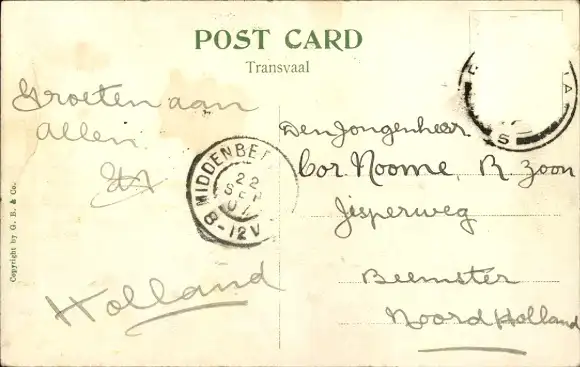 POST CARD
Transvaal
Groeten aan
allen
Den Jongenheer
Cor Noome, R. Zoon
Jisperweg
Beemster
Noord Holland
Holland
MIDDENBE
22
SEP
07
8-12V
Copyright by G. B. & Co.